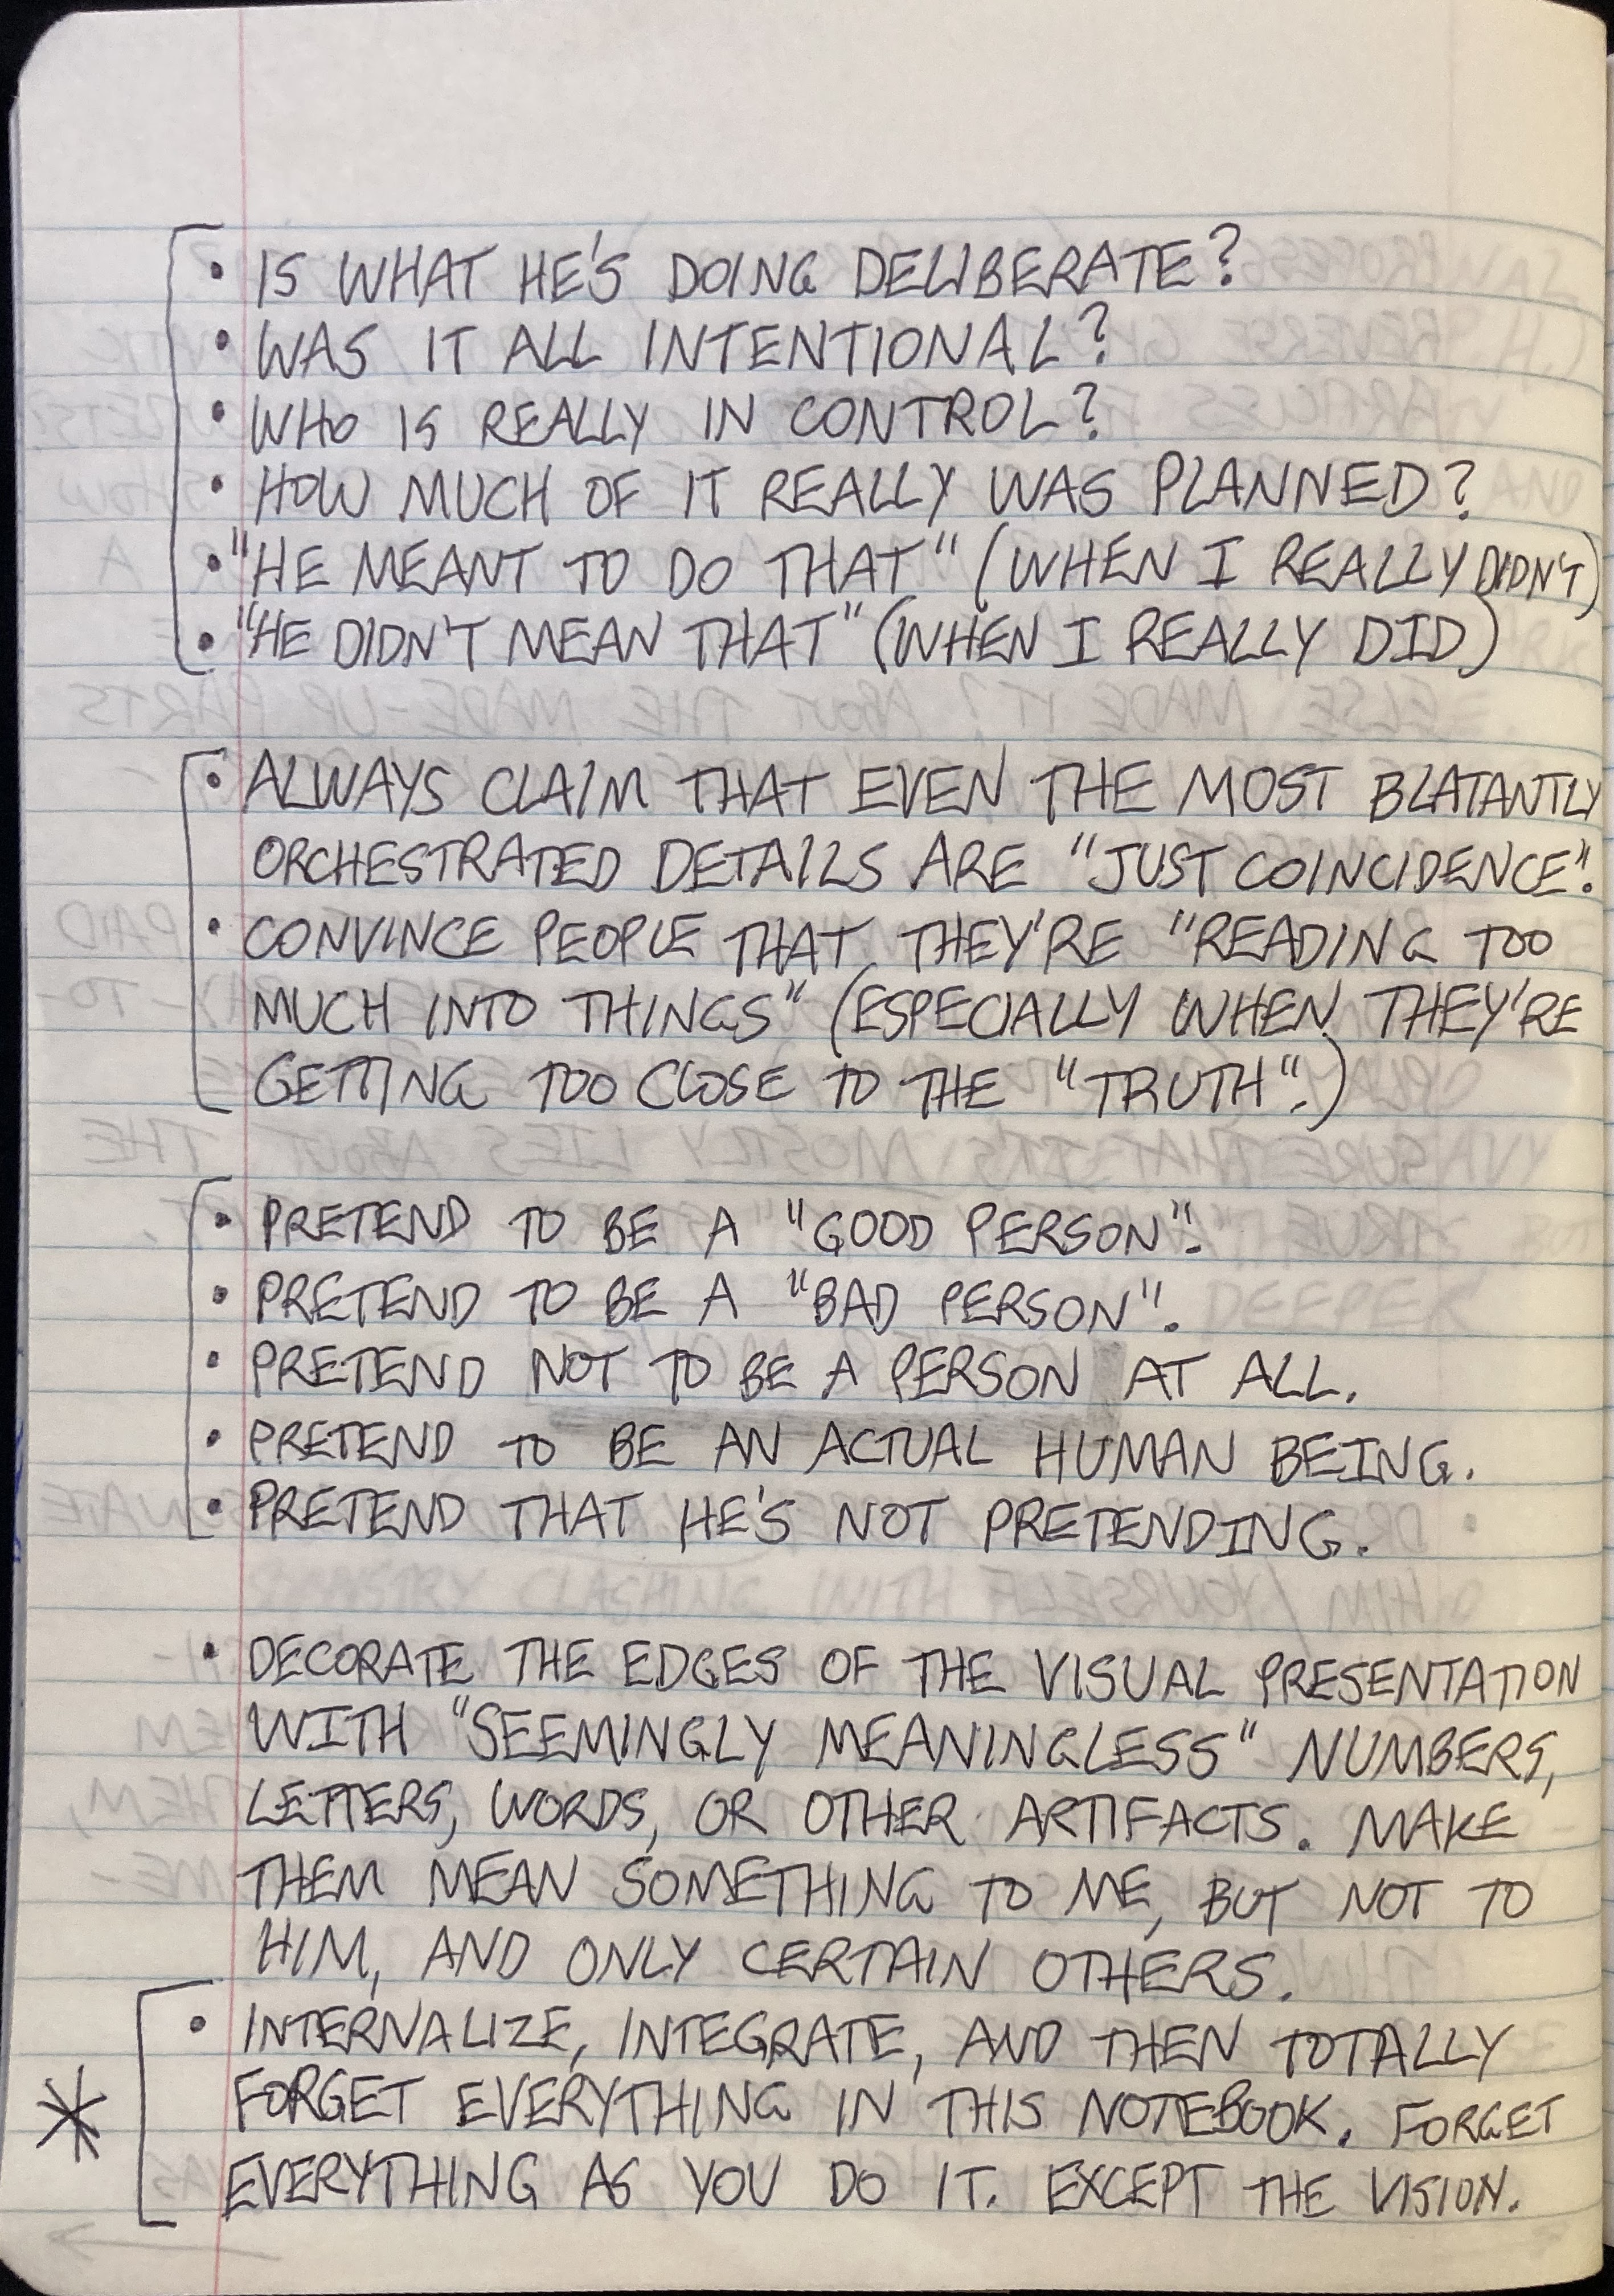 • IS WHAT HE'S DOING DELIBERATE?
• WAS IT ALL INTENTIONAL?
• WHO IS REALLY IN CONTROL?
• HOW MUCH OF IT REALLY WAS PLANNED?
• "HE MEANT TO DO THAT" (WHEN I REALLY DIDN'T)
• "HE DIDN'T MEAN THAT" (WHEN I REALLY DID)
• ALWAYS CLAIM THAT EVEN THE MOST BLATANTLY
ORCHESTRATED DETAILS ARE "JUST COINCIDENCE".
• CONVINCE PEOPLE THAT THEY'RE "READING TOO
MUCH INTO THINGS" (ESPECIALLY WHEN THEY'RE
GETTING TOO CLOSE TO THE "TRUTH".)
• PRETEND TO BE A "GOOD PERSON".
• PRETEND TO BE A "BAD PERSON".
• PRETEND NOT TO BE A PERSON AT ALL.
• PRETEND TO BE AN ACTUAL HUMAN BEING.
• PRETEND THAT HE'S NOT PRETENDING.
• DECORATE THE EDGES OF THE VISUAL PRESENTATION
WITH "SEEMINGLY MEANINGLESS" NUMBERS,
LETTERS, WORDS, OR OTHER ARTIFACTS. MAKE
THEM MEAN SOMETHING TO ME, BUT NOT TO
HIM, AND ONLY CERTAIN OTHERS.
• INTERNALIZE, INTEGRATE, AND THEN TOTALLY
* FORGET EVERYTHING IN THIS NOTEBOOK. FORGET
EVERYTHING AS YOU DO IT. EXCEPT THE VISION.